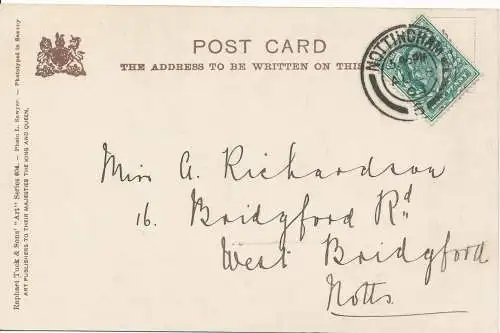 POST CARD
THE ADDRESS TO BE WRITTEN ON THIS
NOTTINGHAM
Miss A. Richardson
16. Bridgford Rd
West Bridgford
Notts.
Raphael Tuck & Sons' "Art" Series 694. — Photo L. Sawyer. — Phototyped in Saxony
ART PUBLISHERS TO THEIR MAJESTIES THE KING AND QUEEN.